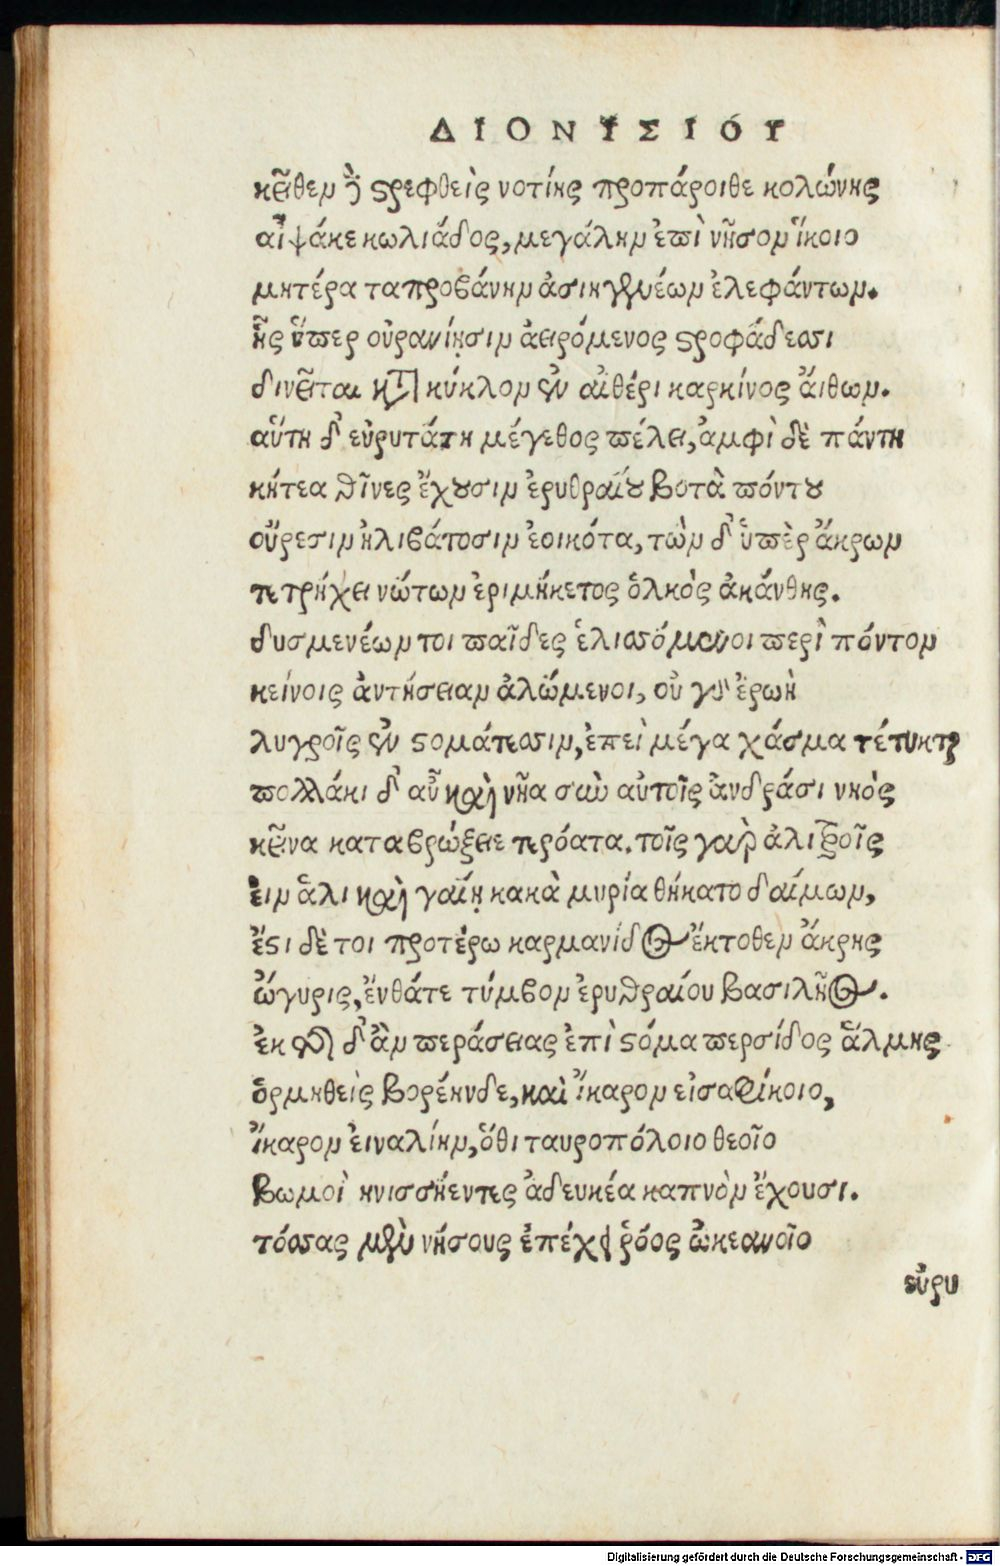 ΔΙΟΝΥΣΙΌΥ
κεῖθεν δὲ στρεφθεὶς νοτίης προπάροιθε κολώνης
αἶψάκε κωλιάδος, μεγάλην ἐπὶ νῆσον ἵκοιο
μητέρα ταπροβάνην ἀσιηγενέων ἐλεφάντων.
ἧς ὕπερ οὐρανίῃσιν ἀειρόμενος στροφάδεσσι
δινεῖται κατὰ κύκλον ἐν αἰθέρι καρκίνος ἄιθων.
αὕτη δ' εὐρυτάτη μέγεθος πέλει, ἀμφὶ δὲ πάντη
κήτεα θῖνες ἔχουσιν ἐρυθραίου βοτὰ πόντου
οὔρεσιν ἠλιβάτοσιν ἐοικότα, τῶν δ' ὑπὲρ ἄκρων
τετρήχει νώτων ἐριμήκετος ὁλκὸς ἀκάνθης.
δυσμενέων τοι παῖδες ἑλισσόμενοι περὶ πόντον
κείνοις ἀντήσειαν ἀλώμενοι, οὐ γὰρ ἔρωὴ
λυγροῖς ἐν στομάτεσσιν, ἐπεὶ μέγα χάσμα τέτυκται
πολλάκι δ' αὖ καὶ νῆα σὺν αὐτοῖς ἀνδράσι νηὸς
κεῖνα καταβρώξειε τερόατα. τοῖς γαρ ἀλιτροῖς
ἐιν ἁλὶ καὶ γαίῃ κακὰ μυρία θήκατο δαίμων,
ἔστι δὲ τοι προτέρω καρμανίδος ἔκτοθεν ἄκρης
ὤγυρις, ἔνθάτε τύμβον ἐρυθραίου βασιλῆος.
ἐκ τῆς δ' ἂν περάσειας ἐπὶ στόμα περσίδος ἅλμης
ὁρμηθεὶς βορέηνδε, καὶ ἴκαρον εἰσαφίκοιο,
ἴκαρον ἐιναλίην, ὅθι ταυροπόλοιο θεοῖο
βωμοὶ κνισσήεντες ἀδευκέα καπνὸν ἔχουσι.
τόσσας μὲν νήσους ἐπέχει ῥόος ὠκεανοῖο
εὐρυ
Digitalisierung gefördert durch die Deutsche Forschungsgemeinschaft - DFG